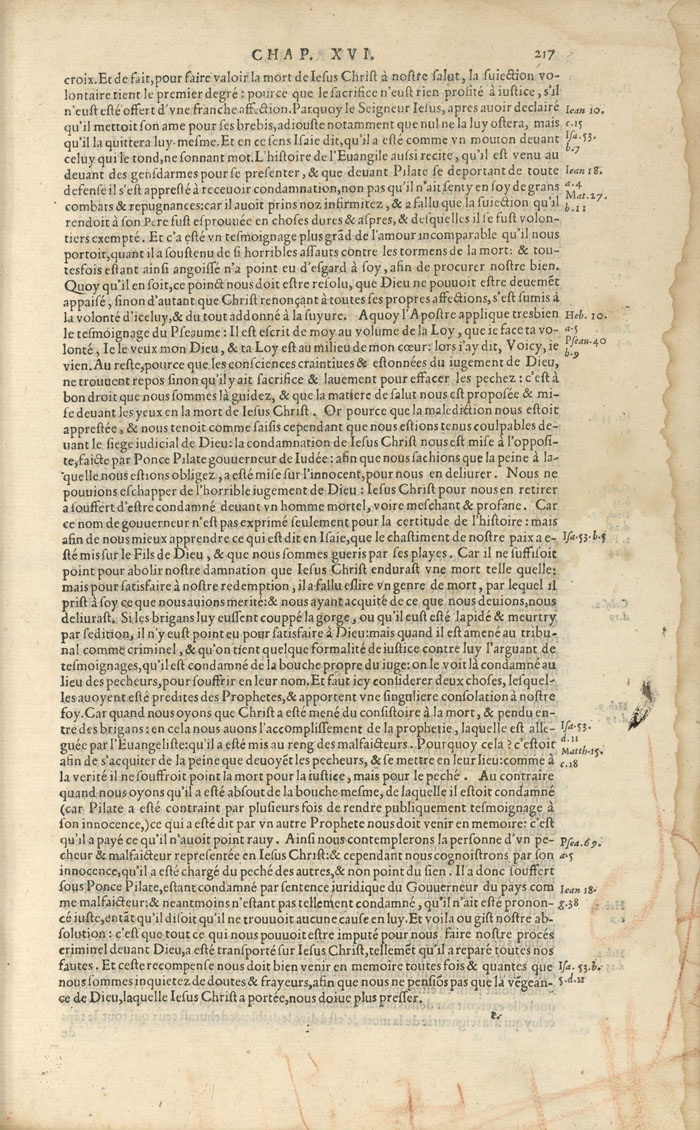 CHAP. XVI. 217
croix.Et de fait, pour faire valoir la mort de Iesus Christ à nostre salut, la suiection vo-
lontaire tient le premier degré : pource que le sacrifice n'eust rien profité à iustice, s'il
n'eust esté offert d'vne franche affection.Parquoy le Seigneur Iesus, apres auoir declairé
Iean 10.
qu'il mettoit son ame pour ses brebis, adiouste notamment que nul ne la luy ostera, mais
c.15
qu'il la quittera luy-mesme.Et en ce sens Isaie dit, qu'il a esté comme vn mouton deuant
Isa.53.
b.7
celuy qui le tond, ne sonnant mot.L'histoire de l'Euangile aussi recite, qu'il est venu au
deuant des gensdarmes pour se presenter, & que deuant Pilate se deportant de toute
Iean 18.
defense il s'est appresté à receuoir condamnation, non pas qu'il n'ait senty en soy de grans
a.4
combats & repugnances: car il auoit prins noz infirmitez, & a fallu que la suiection qu'il
Mat.27.
rendoit à son Pere fust esprouuée en choses dures & aspres, & desquelles il se fust volon-
b.11
tiers exempté. Et c'a esté vn tesmoignage plus grãd de l'amour incomparable qu'il nous
portoit, quant il a soustenu de si horribles assauts contre les tormens de la mort: & tou-
tesfois estant ainsi angoissé n'a point eu d'esgard à soy, afin de procurer nostre bien.
Quoy qu'il en soit, ce poinct nous doit estre resolu, que Dieu ne pouuoit estre deuemẽt
appaisé, sinon d'autant que Christ renonçant à toutes ses propres affections, s'est sumis à
la volonté d'iceluy, & du tout addonné à la suyure. A quoy l'Apostre applique tresbien
Heb. 10.
le tesmoignage du Pseaume : Il est escrit de moy au volume de la Loy, que ie face ta vo-
a.5
lonté, Ie le veux mon Dieu, & ta Loy est au milieu de mon cœur: lors i'ay dit, Voicy, ie
Pseau.40
vien.Au reste, pource que les consciences craintiues & estonnées du iugement de Dieu,
b.9
ne trouuent repos sinon qu'il y ait sacrifice & lauement pour effacer les pechez : c'est à
bon droit que nous sommes là guidez, & que la matiere de salut nous est proposée & mi-
se deuant les yeux en la mort de Iesus Christ. Or pource que la malediction nous estoit
apprestée, & nous tenoit comme saisis cependant que nous estions tenus coulpables de-
uant le siege iudicial de Dieu: la condamnation de Iesus Christ nous est mise à l'opposi-
te, faicte par Ponce Pilate gouuerneur de Iudée : afin que nous sachions que la peine à la-
quelle nous estions obligez, a esté mise sur l'innocent, pour nous en deliurer. Nous ne
pouuions eschapper de l'horrible iugement de Dieu : Iesus Christ pour nous en retirer
a souffert d'estre condamné deuant vn homme mortel, voire meschant & profane. Car
ce nom de gouuerneur n'est pas exprimé seulement pour la certitude de l'histoire : mais
afin de nous mieux apprendre ce qui est dit en Isaie, que le chastiment de nostre paix a e-
Isa.53.b.5
sté mis sur le Fils de Dieu, & que nous sommes gueris par ses playes. Car il ne suffisoit
point pour abolir nostre damnation que Iesus Christ endurast vne mort telle quelle:
mais pour satisfaire à nostre redemption, il a fallu eslire vn genre de mort, par lequel il
prist à soy ce que nous auions merité: & nous ayant acquité de ce que nous deuions, nous
deliurast. Si les brigans luy eussent couppé la gorge, ou qu'il eust esté lapidé & meurtry
par sedition, il n'y eust point eu pour satisfaire à Dieu: mais quand il est amené au tribu-
nal comme criminel, & qu'on tient quelque formalité de iustice contre luy l'arguant de
tesmoignages, qu'il est condamné de la bouche propre du iuge: on le voit là condamné au
lieu des pecheurs, pour souffrir en leur nom.Et faut icy considerer deux choses, lesquel-
les auoyent esté predites des Prophetes, & apportent vne singuliere consolation à nostre
foy.Car quand nous oyons que Christ a esté mené du consistoire à la mort, & pendu en-
tre des brigans : en cela nous auons l'accomplissement de la prophetie, laquelle est alle-
Isa.53.
guée par l'Euangeliste: qu'il a esté mis au reng des malfaicteurs. Pourquoy cela ? c'estoit
d.11
afin de s'acquiter de la peine que deuoyẽt les pecheurs, & se mettre en leur lieu: comme à
Matth.15.
la verité il ne souffroit point la mort pour la iustice, mais pour le peché. Au contraire
c.18
quand nous oyons qu'il a esté absout de la bouche mesme, de laquelle il estoit condamné
(car Pilate a esté contraint par plusieurs fois de rendre publiquement tesmoignage à
son innocence,) ce qui a esté dit par vn autre Prophete nous doit venir en memoire: c'est
qu'il a payé ce qu'il n'auoit point rauy. Ainsi nous contemplerons la personne d'vn pe-
Psea.69.
cheur & malfaicteur representée en Iesus Christ: & cependant nous cognoistrons par son
a.5
innocence, qu'il a esté chargé du peché des autres, & non point du sien. Il a donc souffert
sous Ponce Pilate, estant condamné par sentence iuridique du Gouuerneur du pays com
Iean 18.
me malfaicteur: & neantmoins n'estant pas tellement condamné, qu'il n'ait esté pronon-
g.38
cé iuste, entãt qu'il disoit qu'il ne trouuoit aucune cause en luy. Et voila ou gist nostre ab-
solution : c'est que tout ce qui nous pouuoit estre imputé pour nous faire nostre procés
criminel deuant Dieu, a esté transporté sur Iesus Christ, tellemẽt qu'il a reparé toutes nos
fautes. Et ceste recompense nous doit bien venir en memoire toutes fois & quantes que
Isa. 53.b.
nous sommes inquietez de doutes & frayeurs, afin que nous ne pensiõs pas que la vẽgean-
5.d.11
ce de Dieu, laquelle Iesus Christ a portée, nous doiue plus presser.